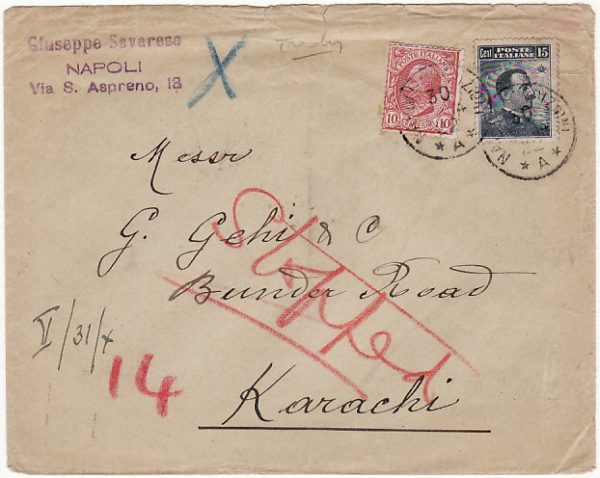 Giuseppe Savarese
NAPOLI
Via S. Aspreno, 13
X
Treaty
POSTE ITALIANE
10 10
Cent POSTE ITALIANE 15
30
★ A ★
30
★ A ★
Messr
G. Gehi & C
Bunder Road
Karachi
Stopped
V/31/4
14